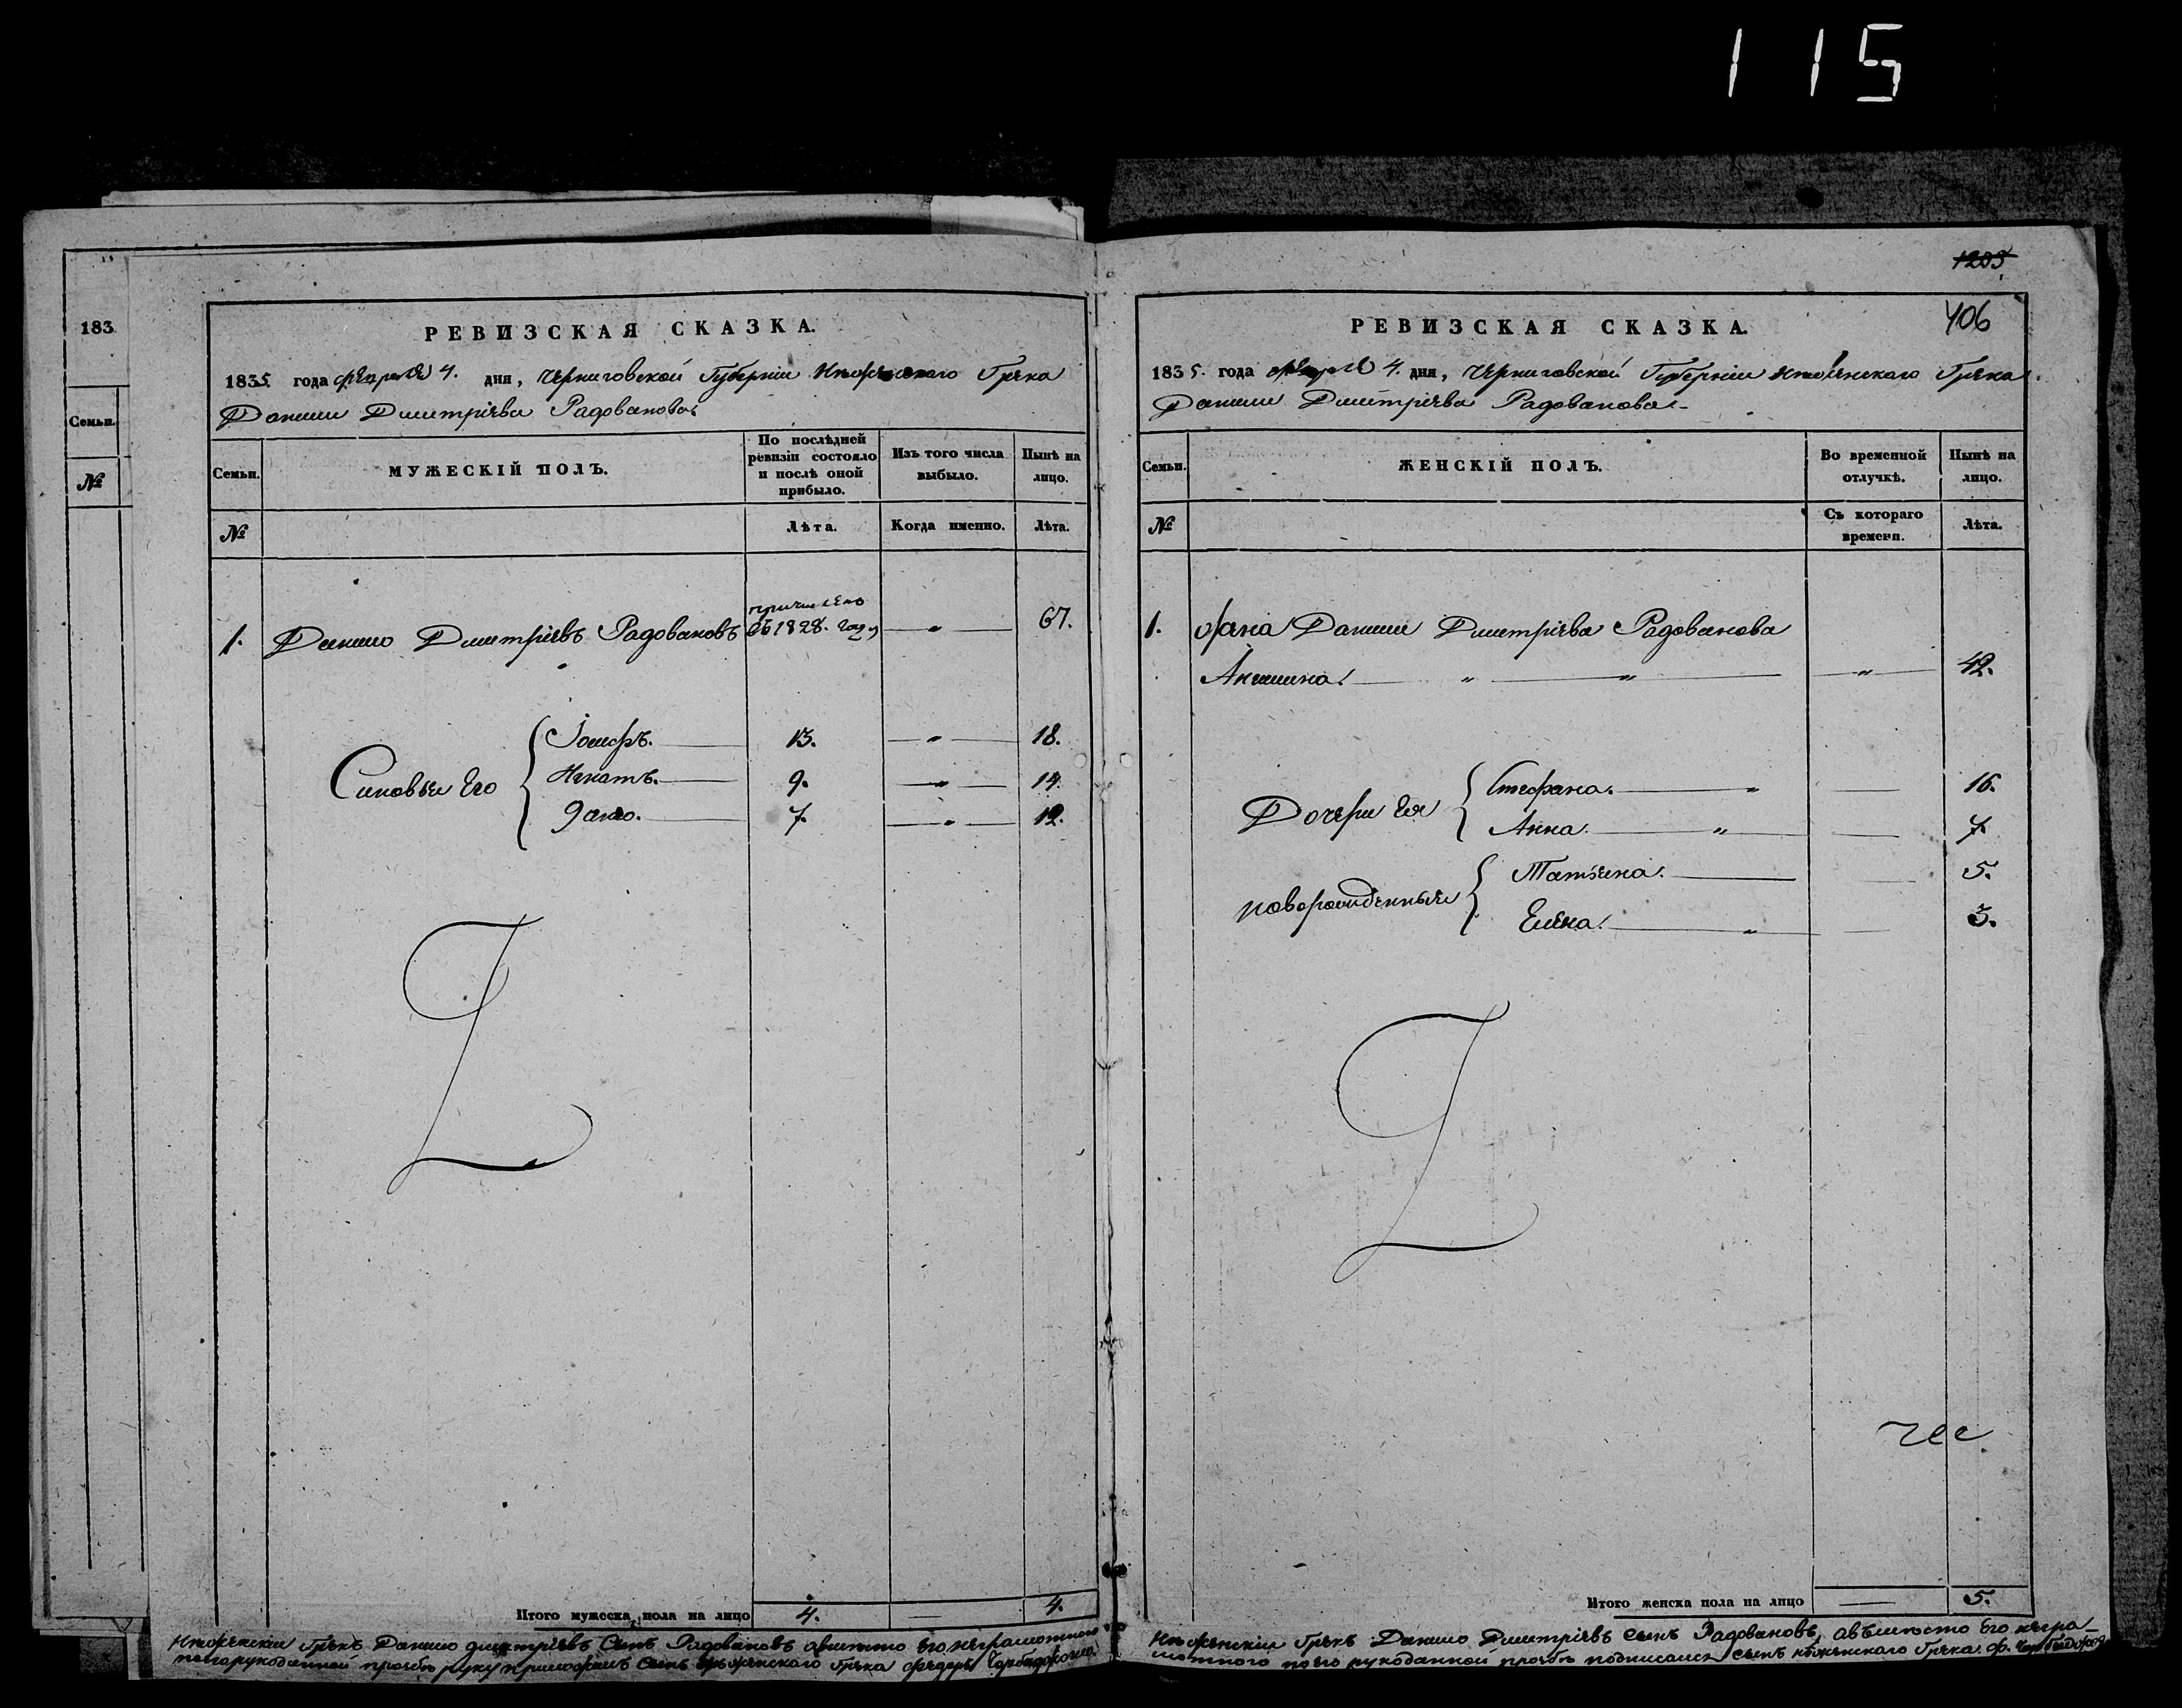 115
1203
406
183
Семьи.
№
РЕВИЗСКАЯ СКАЗКА.
1835. года февраля 4. дня, Черниговской Губернiи Нѣжинскаго Грека
Данили Дмитрiева Радованова
Семьи.
МУЖЕСКІЙ ПОЛЪ.
По послѣдней ревизіи состояло и послѣ оной прибыло.
Изъ того числа выбыло.
Нынѣ на лицо.
№
Лѣта.
Когда именно.
Лѣта.
1. Данило Дмитрiевъ Радовановъ причислено въ 1828. году — „ — 67.
Синовьи Его
Iосифъ. 13. — „ — 18.
Игнатъ. 9. — „ — 14.
7. — „ — 12.
Итого мужеска пола на лицо 4. 4.
Нѣженскiй Грекъ Данило Дмитрiевъ Сынъ Радовановъ авместо его неграмотного
по его рукоданной прозбѣ руку приложилъ Сынъ Нѣженского Грека Федоръ
РЕВИЗСКАЯ СКАЗКА.
1835. года февраля 4. дня, Черниговской Губернiи Нѣженскаго Грека
Данили Дмитрiева Радованова
Семьи.
ЖЕНСКІЙ ПОЛЪ.
Во временной отлучкѣ.
Нынѣ на лицо.
№
Съ котораго времени.
Лѣта.
1. Жена Данили Дмитрiева Радованова
— „ — „ — — „ — 42.
Дочери Ея
Стефана. — „ — 16.
Анна. — „ — 7.
новорожденныи
Татьяна. — 5.
Елена. — „ — 3.
Итого женска пола на лицо — 5.
Нѣженскiй Грекъ Данило Дмитрiевъ сынъ Радовановъ, авьмѣсто Его негра-
мотного по его рукоданной прозбѣ подписался сынъ нѣженского Грека Ф.